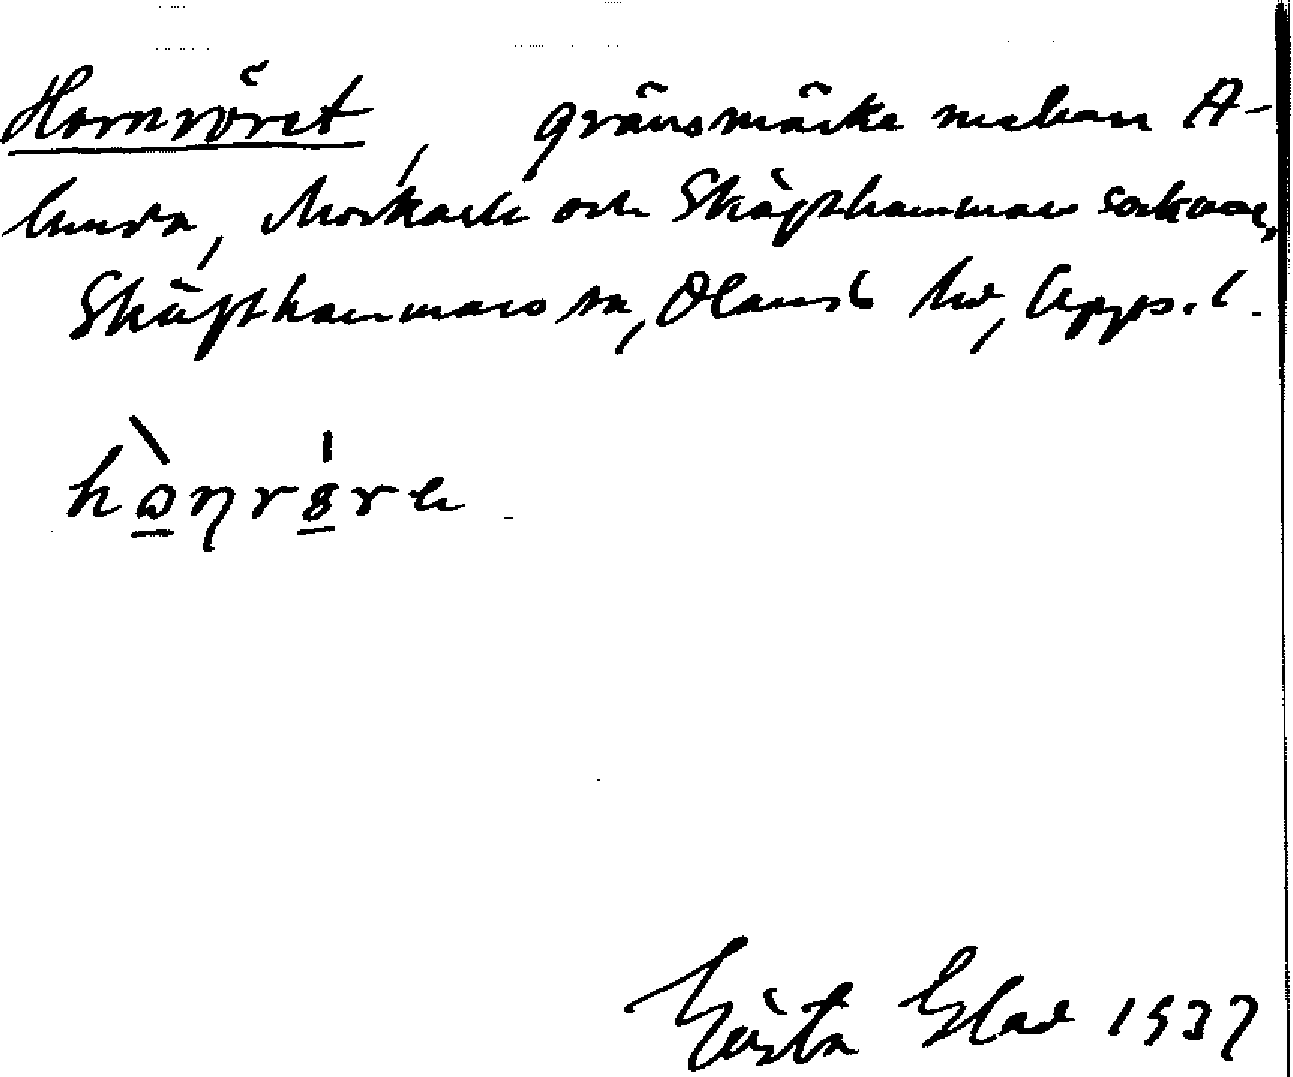 Hornröret, gränsmärke mellan A-
lunda, Morkarla och Skäfthammars socknar,
Skäfthammars sn, Olands hd, Uppl.
hɷ̀ŋrɵ́re
Gösta Glad 1937